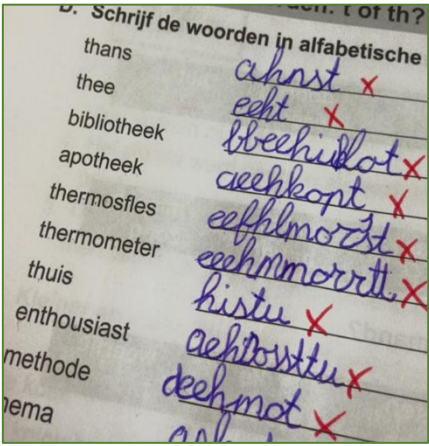 t of th?
D. Schrijf de woorden in alfabetische
thans ahnst x
thee eeht x
bibliotheek x
apotheek aeehkopt x
thermosfles x
thermometer eeehmmorrtt x
thuis histu x
enthousiast x
methode deehmot x
hema